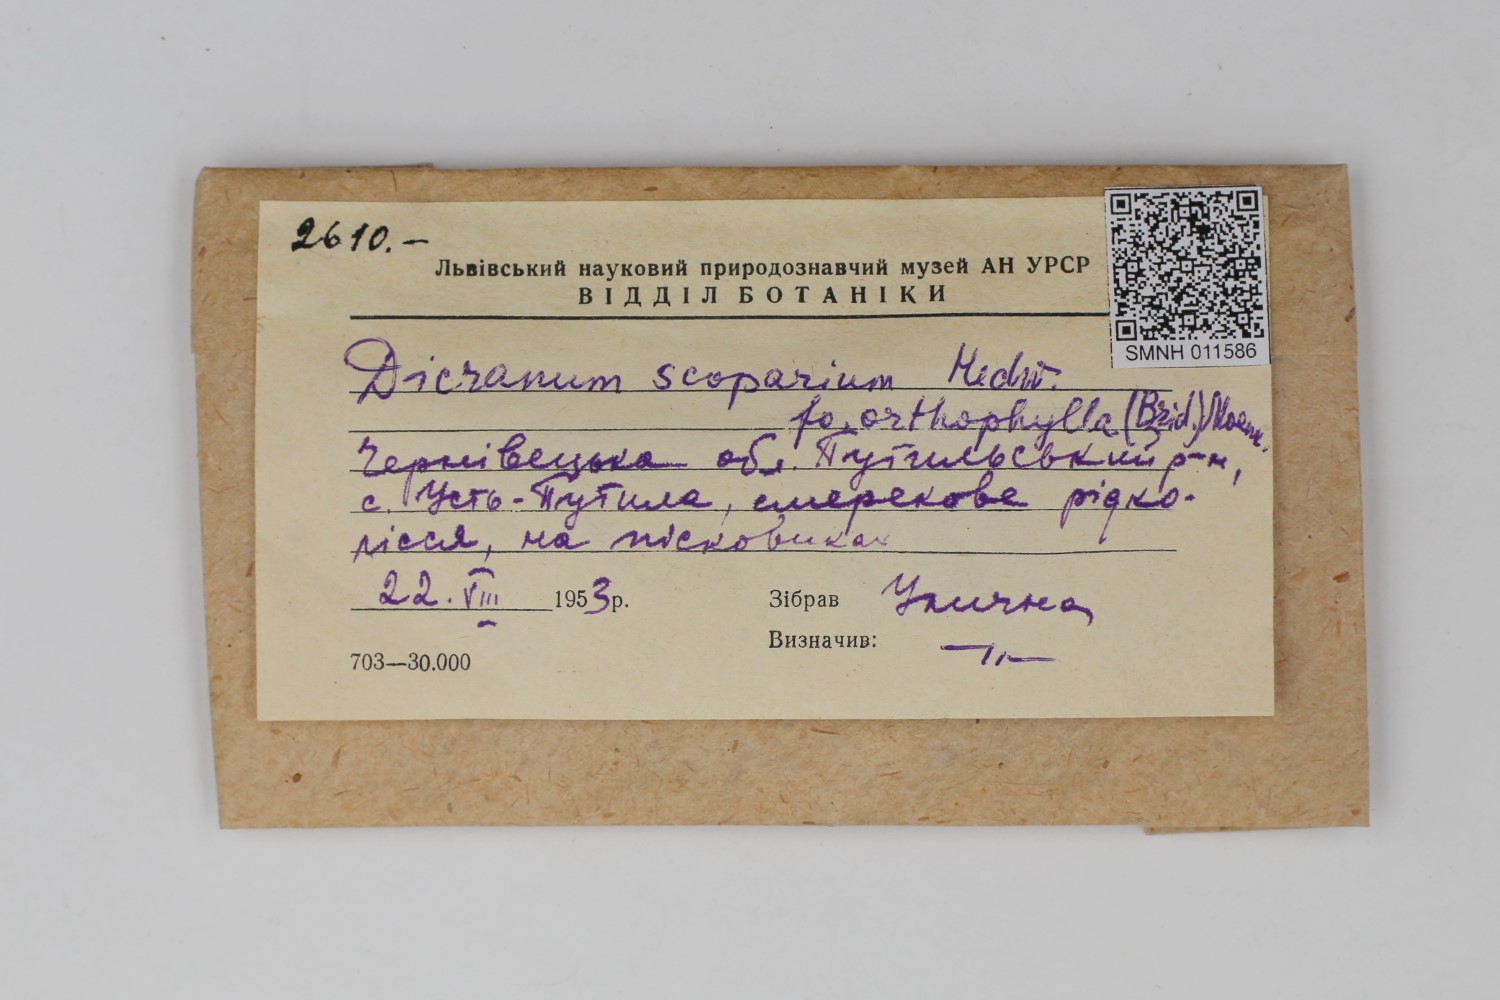 2610.–
Львівський науковий природознавчий музей АН УРСР
ВІДДІЛ БОТАНІКИ
SMNH 011586
Dicranum scoparium Hedw.
fo. orthophylla (Brid.) Moenk.
Чернівецька обл. Путильський р-н,
с. Усть-Путила, смерекове рідко-
лісся, на пісковиках
22.VIII 1953р.
Зібрав Улична
Визначив: —"—
703—30.000